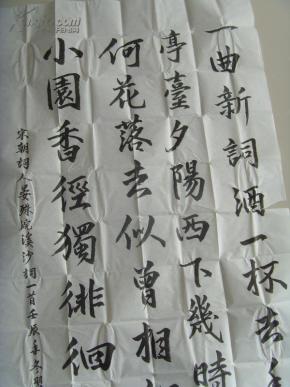 一曲新詞酒一杯去
亭臺夕陽西下幾時
何花落去似曾相
小園香徑獨徘徊
宋朝詞人晏殊浣溪沙詞一首壬辰年冬